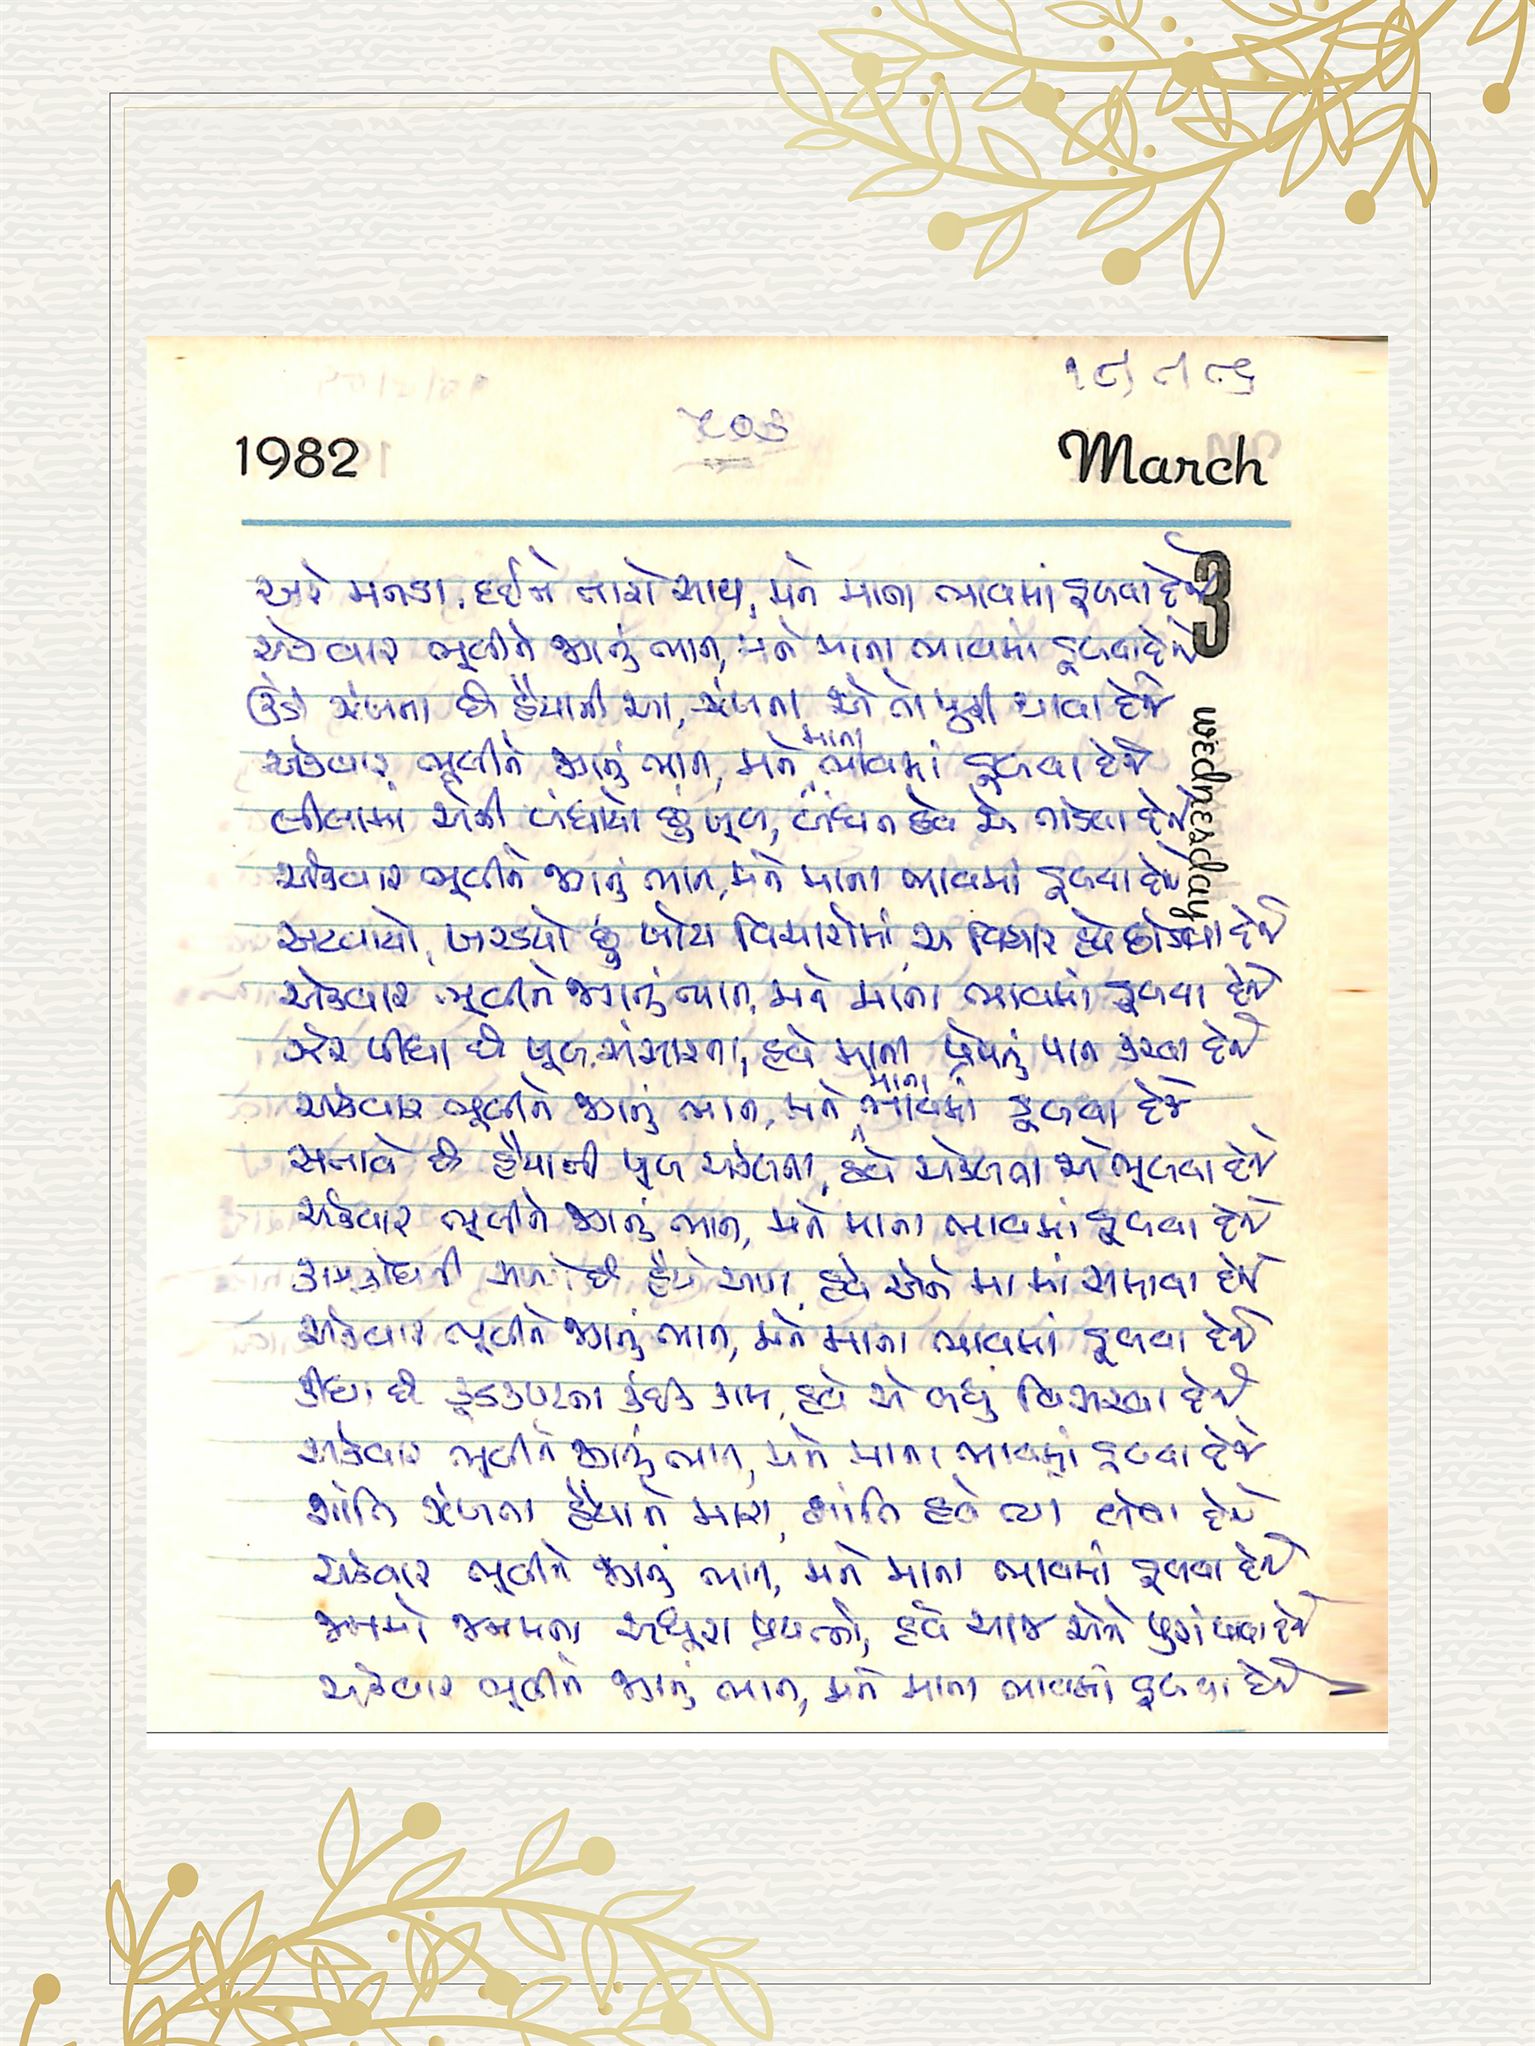 1982
March
3
wednesday
અરે મનડા, દઈને તારો સાથ, મને માના ભાવમાં ડૂબવા દેજે
એકવાર ભૂલીને જગનું ભાન, મને માના ભાવમાં ડૂબવા દેજે
ઊંડી ઝંખના છે હૈયાની આ, ઝંખના એ તો પુરી થાવા દેજે
એકવાર ભૂલીને જગનું ભાન, મને માના ભાવમાં ડૂબવા દેજે
લીલામાં એની બંધાયો છું ખૂબ, બંધન હવે એ તોડવા દેજે
એકવાર ભૂલીને જગનું ભાન, મને માના ભાવમાં ડૂબવા દેજે
અટવાયો, ખરડાયો છું ખોટા વિચારોમાં, એ વિચાર હવે છોડવા દેજે
એકવાર ભૂલીને જગનું ભાન, મને માના ભાવમાં ડૂબવા દેજે
ઝેર પીધા છે ખૂબ સંસારના, હવે માના પ્રેમનું પાન કરવા દેજે
એકવાર ભૂલીને જગનું ભાન, મને માના ભાવમાં ડૂબવા દેજે
સતાવે છે હૈયાની ખુબ એકલતા, હવે એકલતા એ ભુલવા દેજે
એકવાર ભૂલીને જગનું ભાન, મને માના ભાવમાં ડૂબવા દેજે
કામક્રોધની છે હૈયે આગ, હવે એને મા માં સમાવા દેજે
એકવાર ભૂલીને જગનું ભાન, મને માના ભાવમાં ડૂબવા દેજે
કીધા છે કૂડકપટના કંઈક કામ, હવે એ બધું વિસરવા દેજે
એકવાર ભૂલીને જગનું ભાન, મને માના ભાવમાં ડૂબવા દેજે
શાંતિ ઝંખતા હૈયાને મારા, શાંતિ હવે ત્યાં લેવા દેજે
એકવાર ભૂલીને જગનું ભાન, મને માના ભાવમાં ડૂબવા દેજે
જનમો જનમના અધૂરા પ્રયત્નો, હવે આજ એને પુરાં થાવા દેજે
એકવાર ભૂલીને જગનું ભાન, મને માના ભાવમાં ડૂબવા દેજે